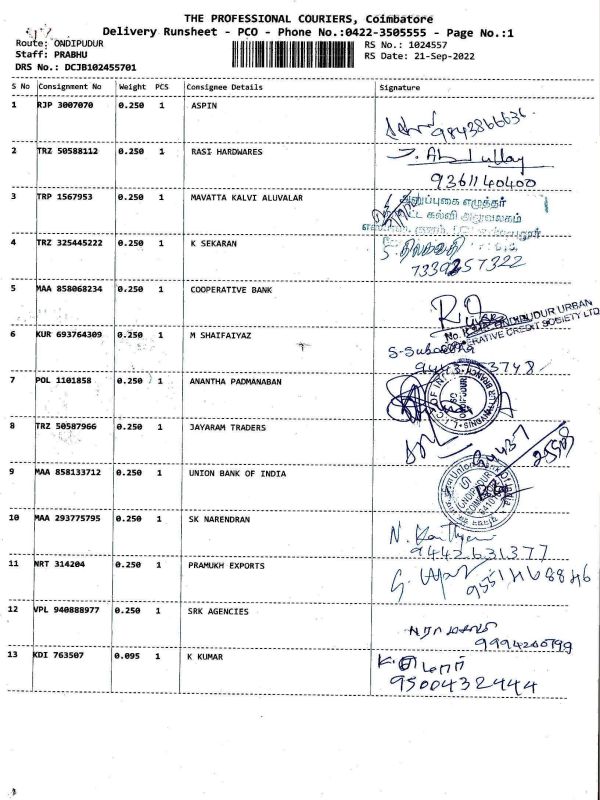 THE PROFESSIONAL COURIERS, Coimbatore
Delivery Runsheet - PCO - Phone No.:0422-3505555 - Page No.:1
Route: ONDIPUDUR
RS No.: 1024557
Staff: PRABHU
RS Date: 21-Sep-2022
DRS No.: DCJB102455701
S No Consignment No Weight PCS Consignee Details Signature
1 RJP 3007070 0.250 1 ASPIN
9843866636
2 TRZ 50588112 0.250 1 RASI HARDWARES
J. Abdullay
9361140400
3 TRP 1567953 0.250 1 MAVATTA KALVI ALUVALAR
4 TRZ 325445222 0.250 1 K SEKARAN
7339257322
5 MAA 858068234 0.250 1 COOPERATIVE BANK
ONDIPUDUR URBAN
CREDIT SOCIETY LTD
6 KUR 693764309 0.250 1 M SHAIFAIYAZ
7 POL 1101858 0.250 1 ANANTHA PADMANABAN
8 TRZ 50587966 0.250 1 JAYARAM TRADERS
9 MAA 858133712 0.250 1 UNION BANK OF INDIA
10 MAA 293775795 0.250 1 SK NARENDRAN
9442631377
11 NRT 314204 0.250 1 PRAMUKH EXPORTS
9551468846
12 VPL 940888977 0.250 1 SRK AGENCIES
9994200799
13 KDI 763507 0.095 1 K KUMAR
9500432444